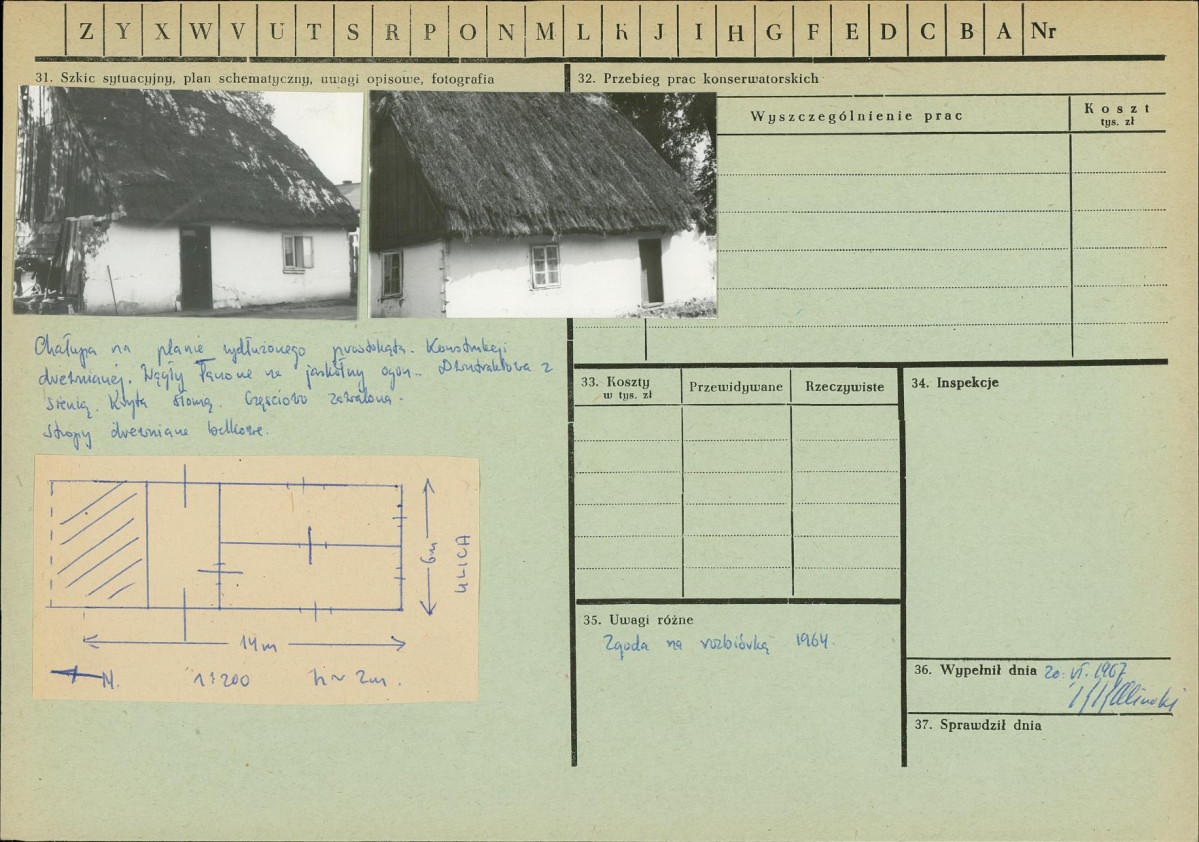 Z Y X W V U T S R P O N M L K J I H G F E D C B A Nr
31. Szkic sytuacyjny, plan schematyczny, uwagi opisowe, fotografia
32. Przebieg prac konserwatorskich
Wyszczególnienie prac
Koszt
tys. zł
Chałupa na planie wydłużonego prostokąta. Konstrukcji
drewnianej. Węgły łączone na jaskółczy ogon. Dwutraktowa z
sienią. Kryta słomą. Częściowo zawalona.
Stropy drewniane belkowe.
6m
ULICA
14m
N.
1:200
h ~ 2m.
33. Koszty
w tys. zł
Przewidywane
Rzeczywiste
34. Inspekcje
35. Uwagi różne
Zgoda na rozbiórkę 1964.
36. Wypełnił dnia 20. VI. 1967
37. Sprawdził dnia